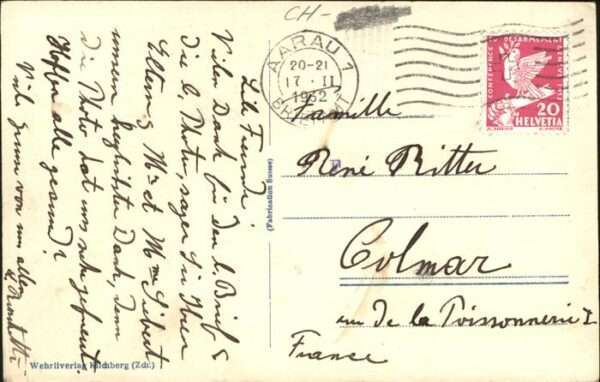 CH-
AARAU 1
20-21
17·II
1932
CONFERENCE DU DESARMEMENT
20
HELVETIA
Lb. Freunde!
Vielen Dank für den l. Brief &
die l. Photo, sagen Sie Ihren
Eltern & Mr et Mme Siebert
unsern herzlichsten Dank, denn
die Photo hat uns sehr gefreut.
Hoffen alle gesund?
Viele von uns allen
Famille
René Ritter
Colmar
rue de la Poissonnerie 1
France
(Fabrication Suisse)
Wehrliverlag Kilchberg (Zch.)